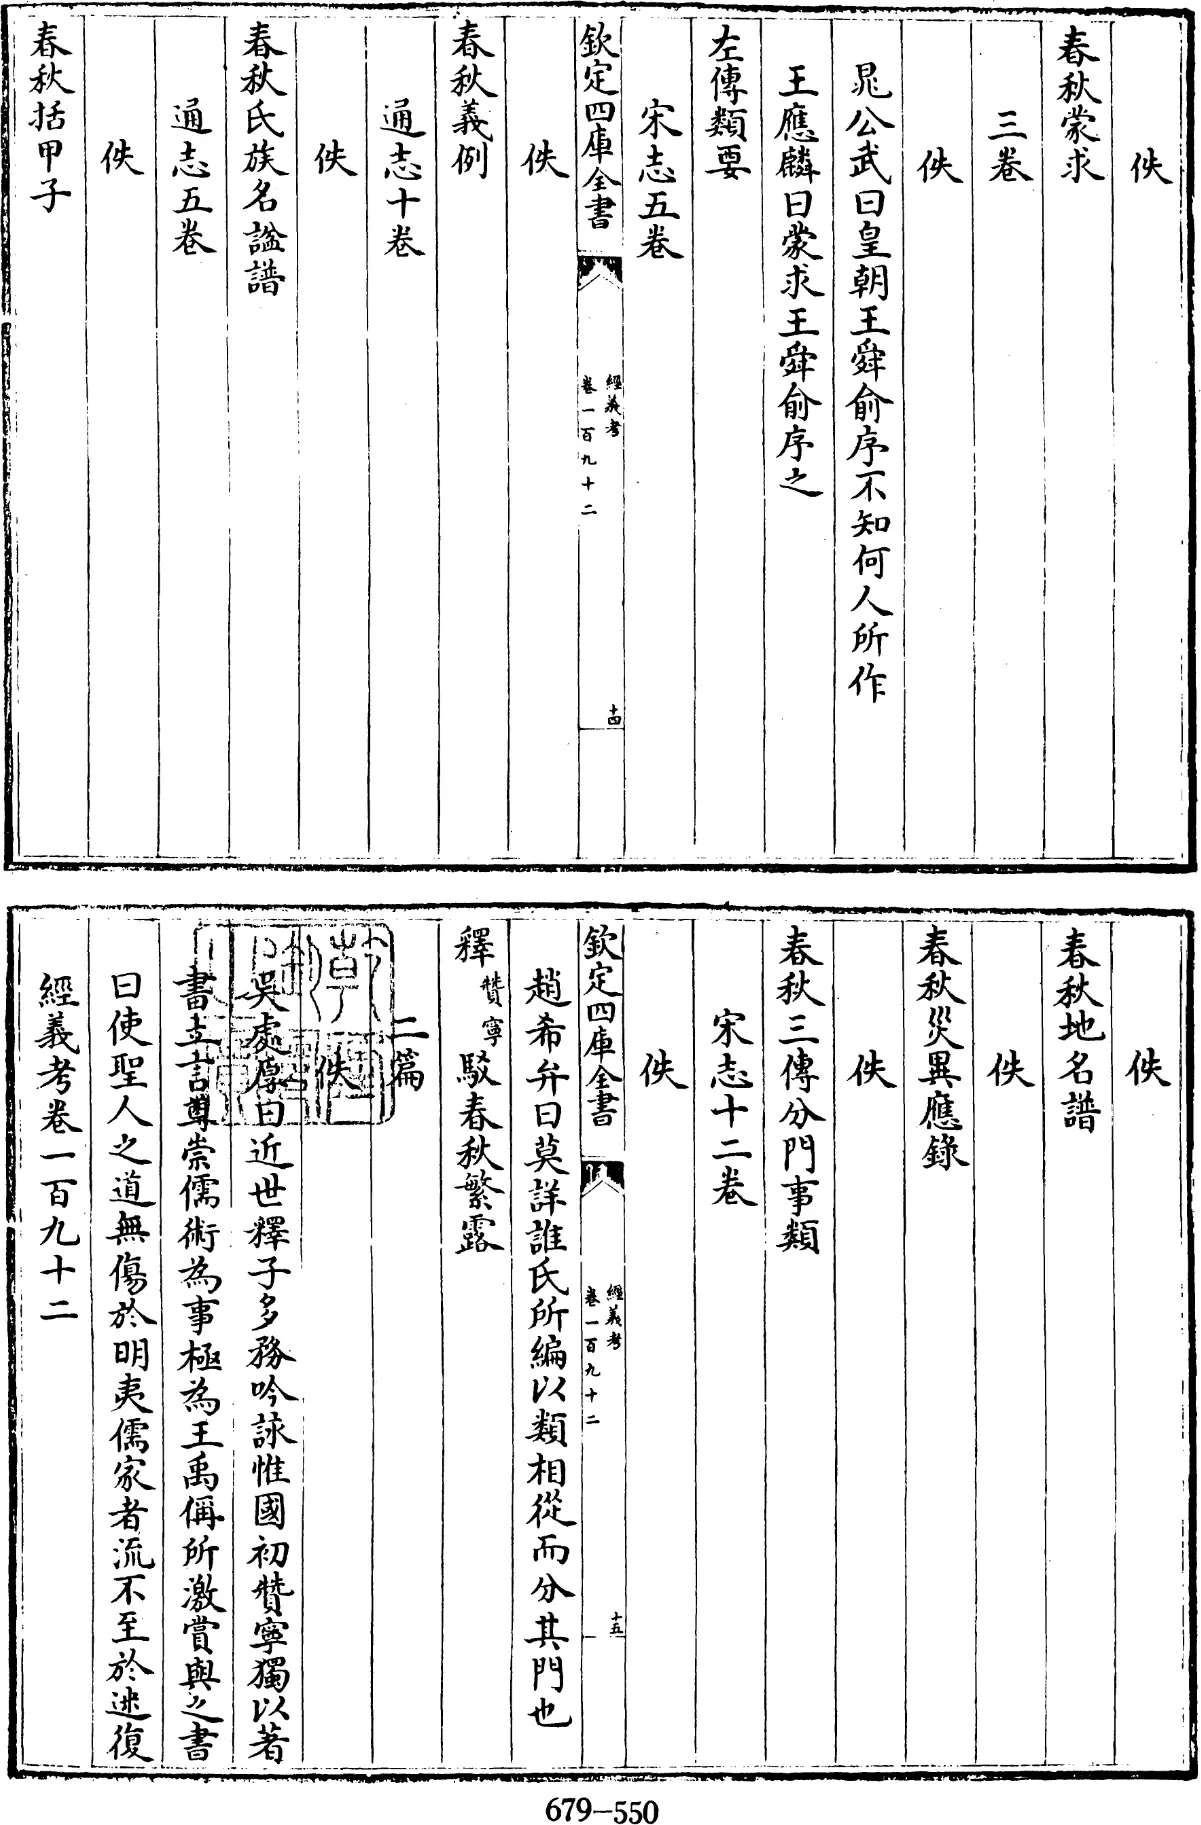 佚
春秋蒙求
三卷
佚
晁公武曰皇朝王舜俞序不知何人所作
王應麟曰蒙求王舜俞序之
左傳類要
宋志五卷
欽定四庫全書
經義考
卷一百九十二
十四
佚
春秋義例
通志十卷
佚
春秋氏族名諡譜
通志五卷
佚
春秋括甲子
佚
春秋地名譜
佚
春秋災異應錄
佚
春秋三傳分門事類
宋志十二卷
佚
欽定四庫全書
經義考
卷一百九十二
十五
趙希弁曰莫詳誰氏所編以類相從而分其門也
釋贊寧駁春秋繁露
二篇
佚
吳處厚曰近世釋子多務吟詠惟國初贊寧獨以著
書立言尊崇儒術為事極為王禹偁所激賞與之書
曰使聖人之道無傷於明夷儒家者流不至於迷復
經義考卷一百九十二
679-550